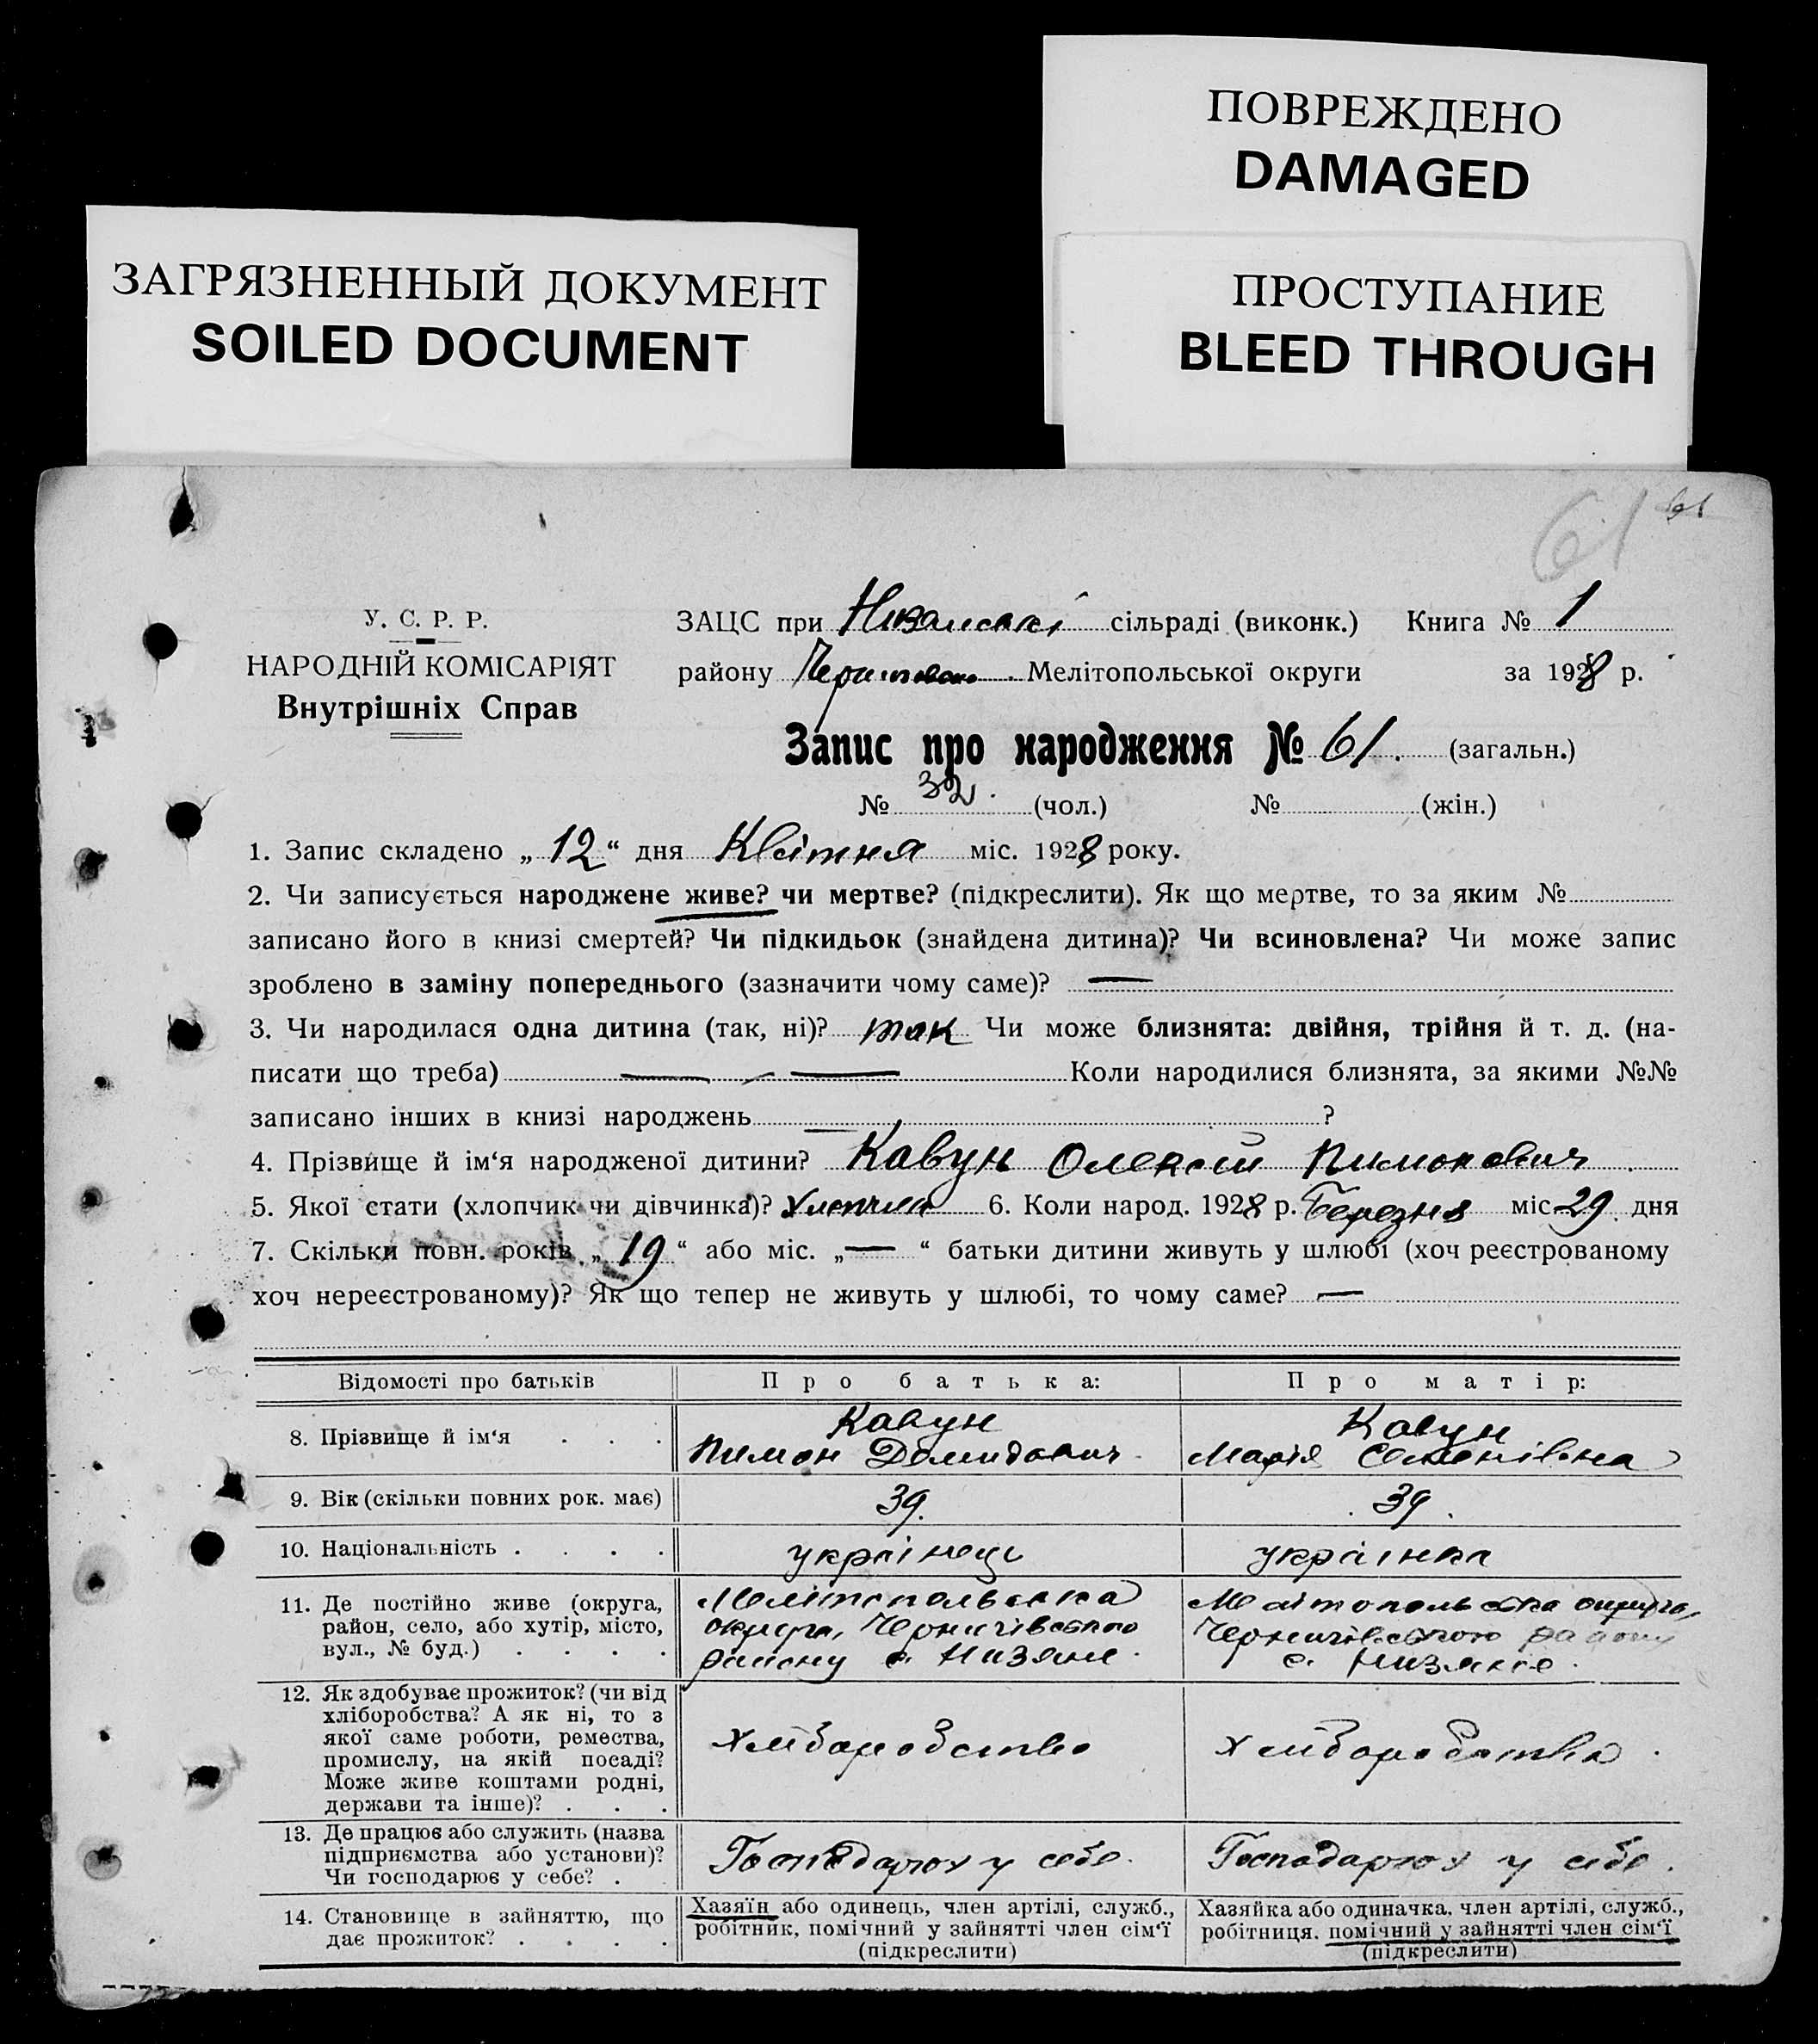 ПОВРЕЖДЕНО
DAMAGED
ЗАГРЯЗНЕННЫЙ ДОКУМЕНТ
SOILED DOCUMENT
ПРОСТУПАНИЕ
BLEED THROUGH
61 61
У. С. Р. Р.
НАРОДНІЙ КОМІСАРІЯТ
Внутрішніх Справ
ЗАЦС при сільраді (виконк.) Книга № 1
району Мелітопольської округи за 1928 р.
Запис про народження № 61. (загальн.)
№ 32. (чол.) № (жін.)
1. Запис складено „12“ дня Квітня міс. 1928 року.
2. Чи записується народжене живе? чи мертве? (підкреслити). Як що мертве, то за яким №
записано його в книзі смертей? Чи підкидьок (знайдена дитина)? Чи всиновлена? Чи може запис
зроблено в заміну попереднього (зазначити чому саме)? —
3. Чи народилася одна дитина (так, ні)? так Чи може близнята: двійня, трійня й т. д. (на-
писати що треба) — — Коли народилися близнята, за якими №№
записано інших в книзі народжень — ?
4. Прізвище й ім‘я народженої дитини? Кавун Олексій Пимонович
5. Якої стати (хлопчик чи дівчинка)? Хлопчик 6. Коли народ. 1928 р. Березня міс 29 дня
7. Скільки повн. років „19“ або міс. „—“ батьки дитини живуть у шлюбі (хоч реєстрованому
хоч нереєстрованому)? Як що тепер не живуть у шлюбі, то чому саме? —
Відомості про батьків Про батька: Про матір:
8. Прізвище й ім‘я . . . Кавун Пимон Демидович Кавун Марія Семенівна
9. Вік (скільки повних рок. має) 39. 39.
10. Національність . . . . українець українка
11. Де постійно живе (округа, Мелітопольська Мелітопольська округа,
район, село, або хутір, місто, округи, Чернигівського Чернигівського району
вул., № буд.) . . . . району с. Низяне с. Низяне.
12. Як здобуває прожиток? (чи від
хліборобства? А як ні, то з
якої саме роботи, ремества, Хліборобство Хліборобство
промислу, на якій посаді?
Може живе коштами родні,
держави та інше)? . . .
13. Де працює або служить (назва
підприємства або установи)? Господарює у себе. Господарює у себе.
Чи господарює у себе? .
14. Становище в зайняттю, що Хазяїн або одинець, член артілі, служб., Хазяйка або одиначка, член артілі, служб.,
дає прожиток? . . . . робітник, помічний у зайнятті член сім‘ї робітниця, помічний у зайнятті член сім‘ї
(підкреслити) (підкреслити)